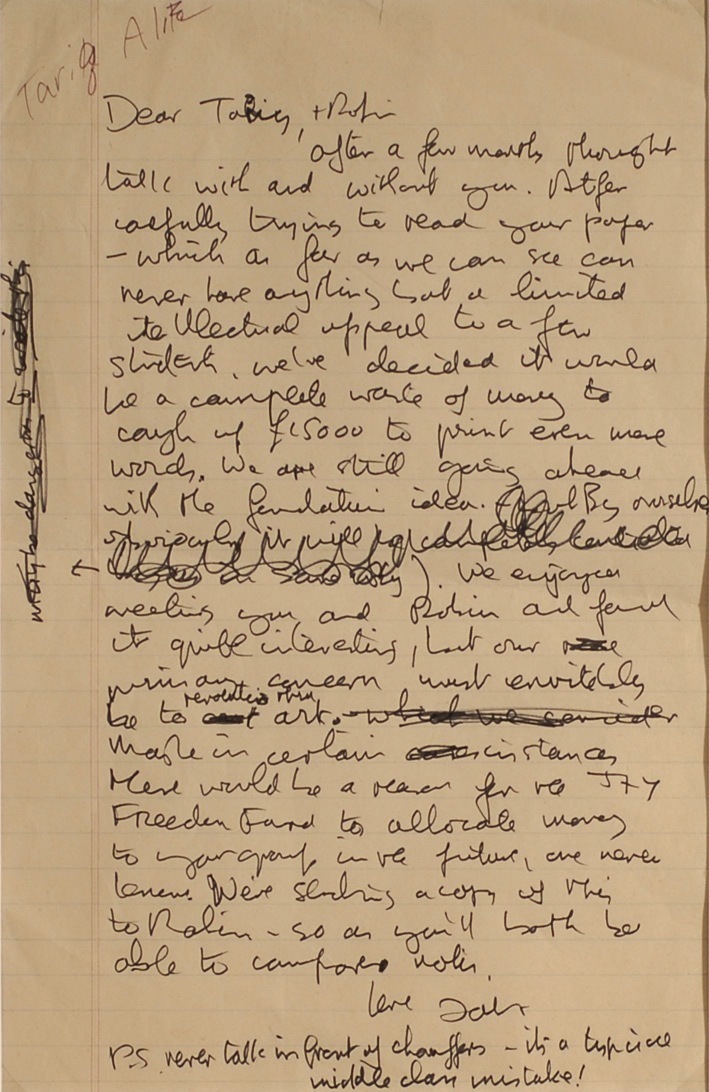 Tariq Alite
Dear Tariq, + Robin
after a few months thought
talk with and without you. Atfer
carefully trying to read your paper
- which as far as we can see can
never have anything but a limited
itellectual appeal to a few
students, we've decided it would
be a complete waste of money to
cough up £15000 to print even more
words. We are still going ahead
with the foundation idea. ( But By ourselves
obviously it will
). We enjoyed
meeting you and Robin and found
it quite interesting, but our
primary concern must envitably
be to revolutionise art.
Maybe in certain cirscistances
there would be a reason for the J + Y
Freedom Fund to allocate money
to your group in the future, one never
knows. We're sending a copy of this
to Robin - so as you'll both be
able to compare notes.
love John
P.S. never talk in front of chauffers - its a typicial
middle class mistake!